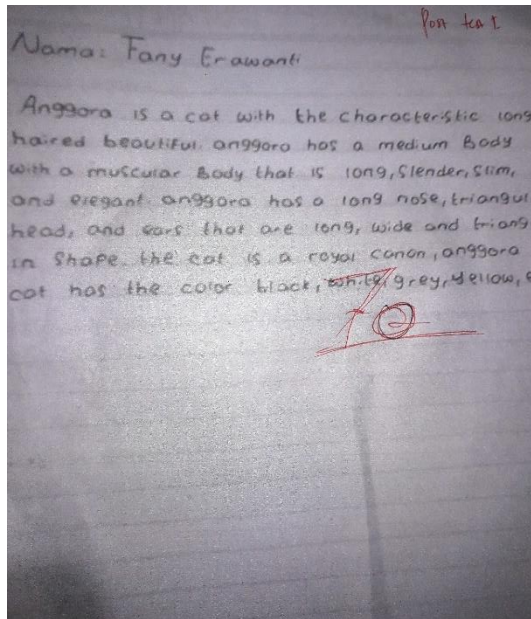 Post test 1
Nama: Fany Erawanti
Anggora is a cat with the characteristic long
haired beautiful. anggora has a medium Body
with a muscular Body that is long, Slender, Slim,
and elegant. anggora has a long nose, triangul
head, and ears that are long, wide and triang
in Shape. the cat is a royal canon, anggora
cat has the color black, white, grey, yellow,